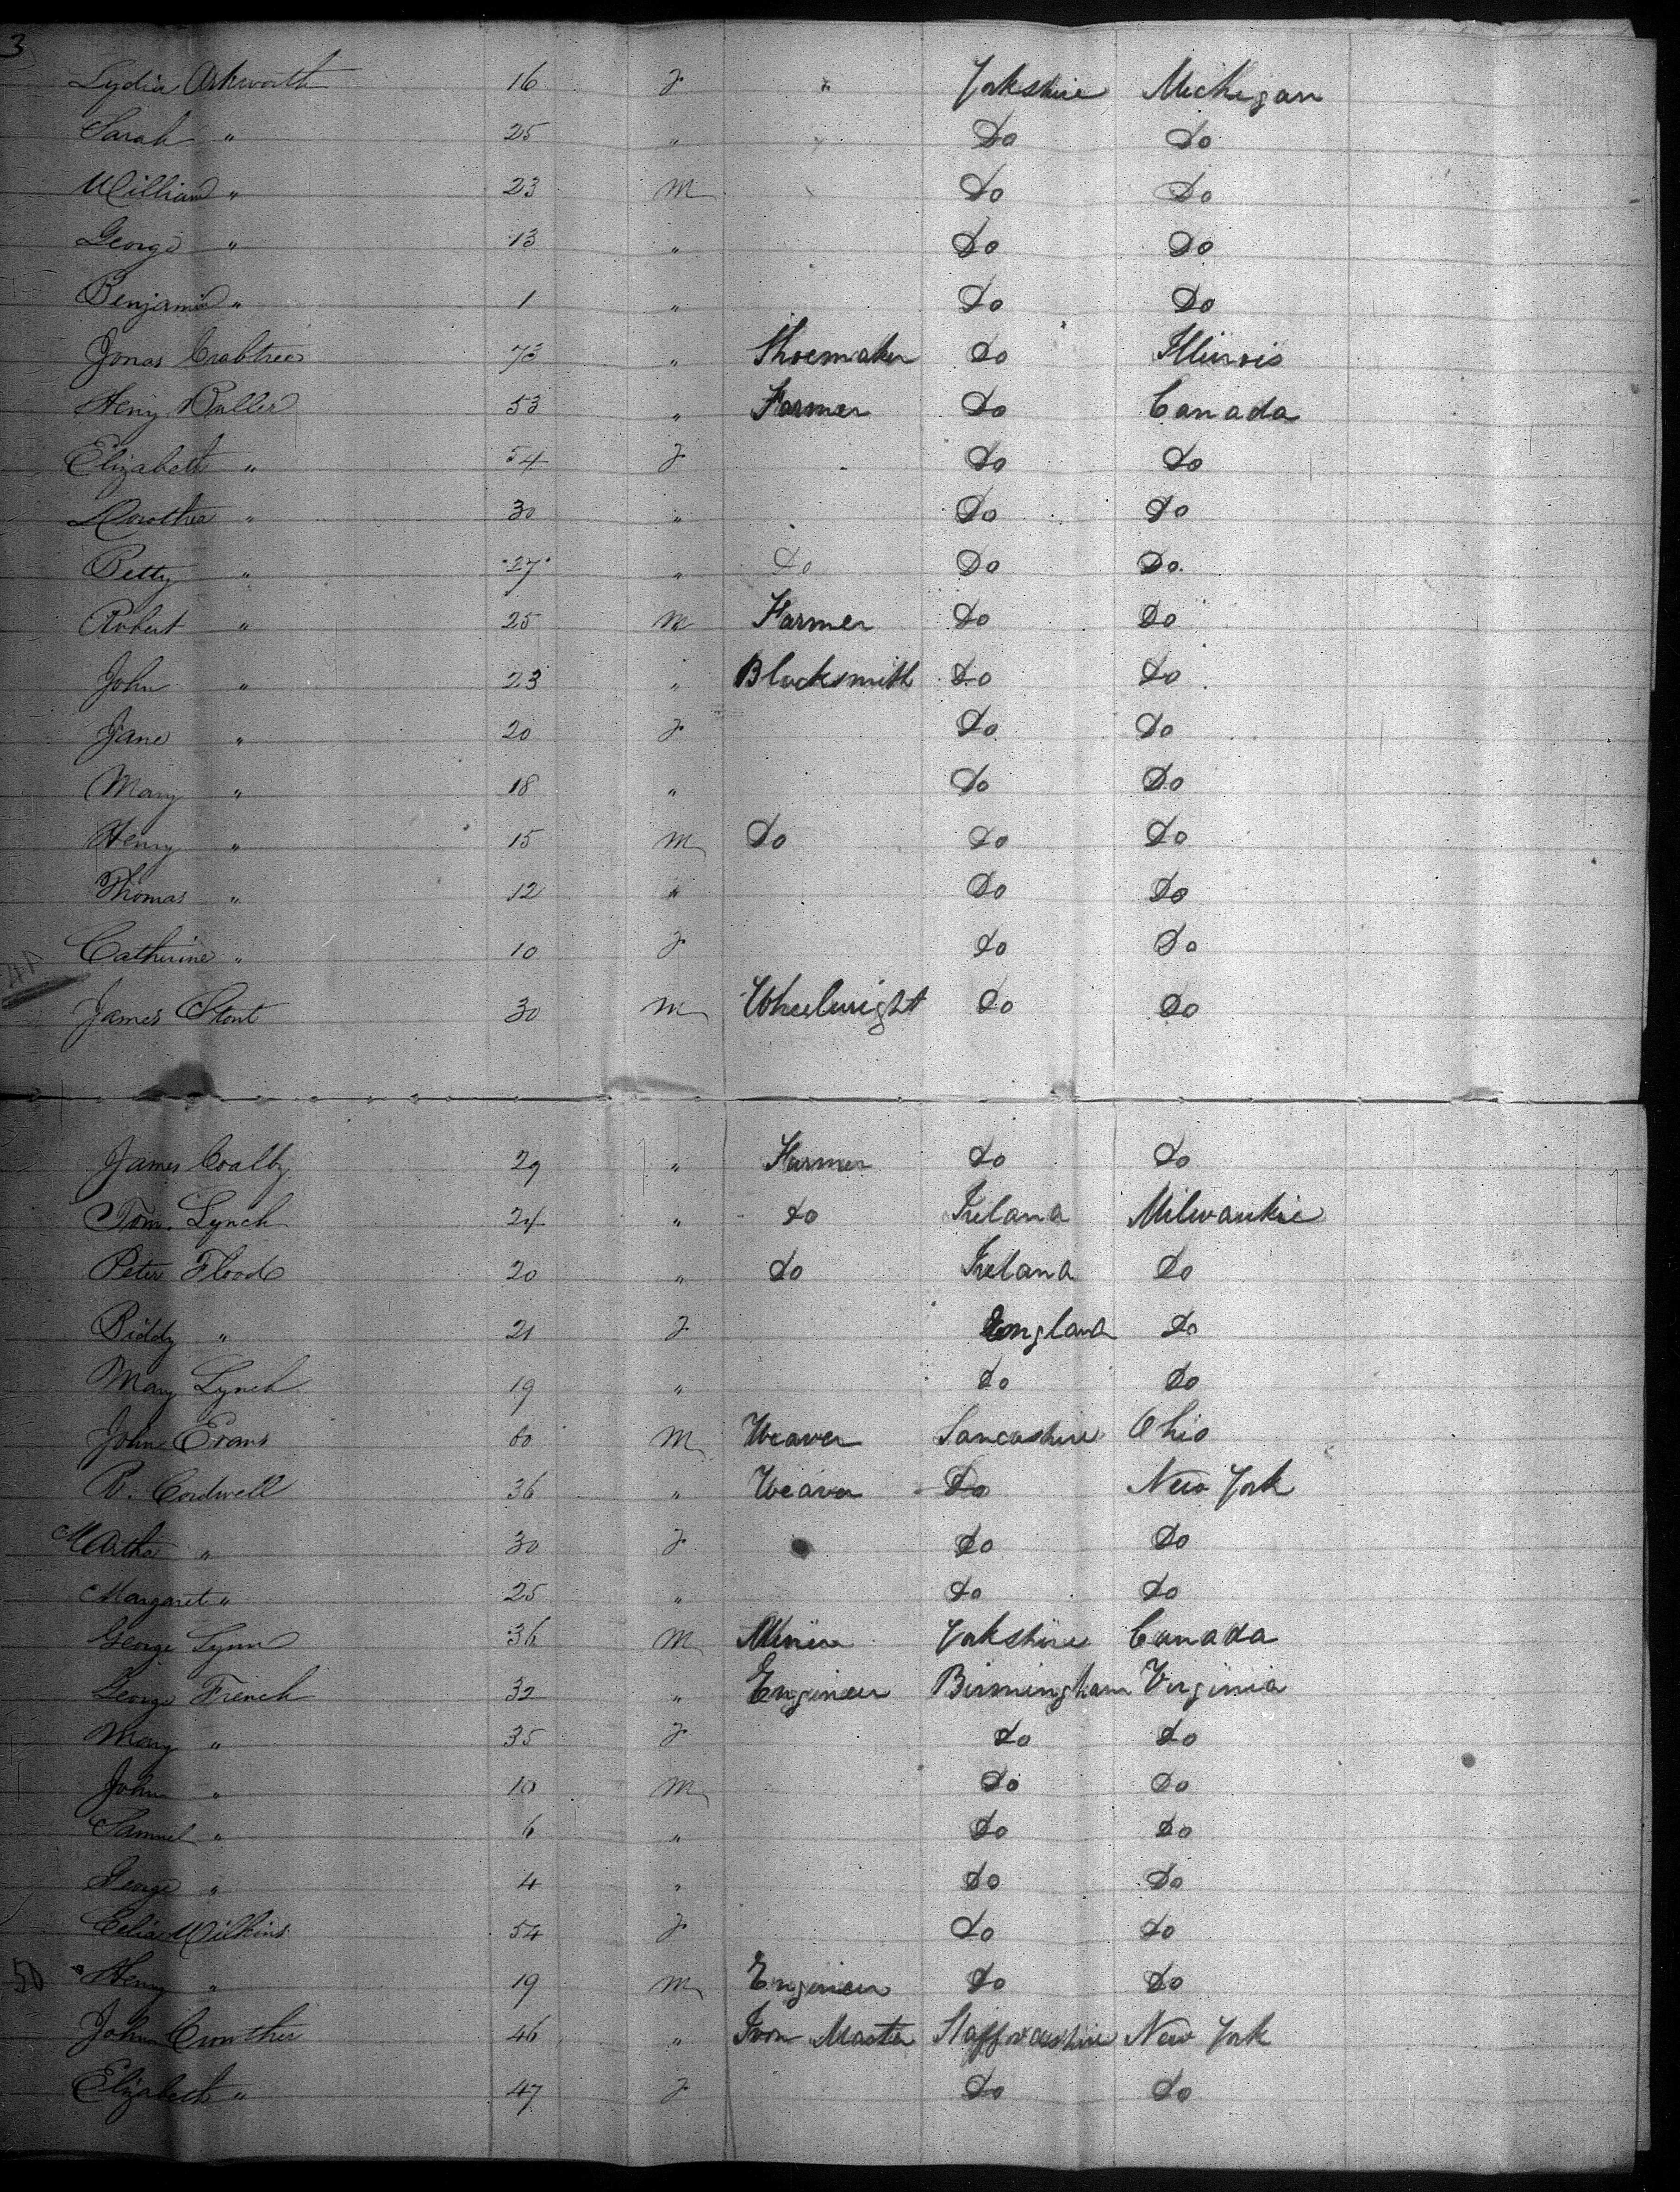 3
Lydia Ashworth 16 f " Yorkshire Michigan
Sarah " 25 " Do Do
William " 23 m Do Do
George " 13 " Do Do
Benjamin " 1 " Do Do
Jonas Crabtree 73 " Shoemaker Do Illinois
Henry Buller 53 " Farmer Do Canada
Elizabeth " 54 f Do Do
Dorothea " 30 " Do Do
Betty " 27 " Do Do Do
Robert " 25 m Farmer Do Do
John " 23 " Blacksmith Do Do
Jane " 20 f Do Do
Mary " 18 " Do Do
Henry " 15 m Do Do Do
Thomas " 12 " Do Do
Catherine " 10 f Do Do
James Stont 30 m Wheelwright Do Do
James Coalby 29 " Farmer Do Do
Tom. Lynch 24 " Do Ireland Milwaukie
Peter Flood 20 " Do Ireland Do
Biddy " 21 f England Do
Mary Lynch 19 " Do Do
John Evans 60 m Weaver Lancashire Ohio
R. Cordwell 36 " Weaver Do New York
Martha " 30 f Do Do
Margaret " 25 " Do Do
George Lynn 36 m Miner Yorkshire Canada
George French 32 " Engineer Birmingham Virginia
Mary " 35 f Do Do
John " 10 m Do Do
Samuel " 6 " Do Do
George " 4 " Do Do
Celia Wilkins 54 f Do Do
50 Henry " 19 m Engineer Do Do
John Crowther 46 " Iron Master Staffordshire New York
Elizabeth " 47 f Do Do